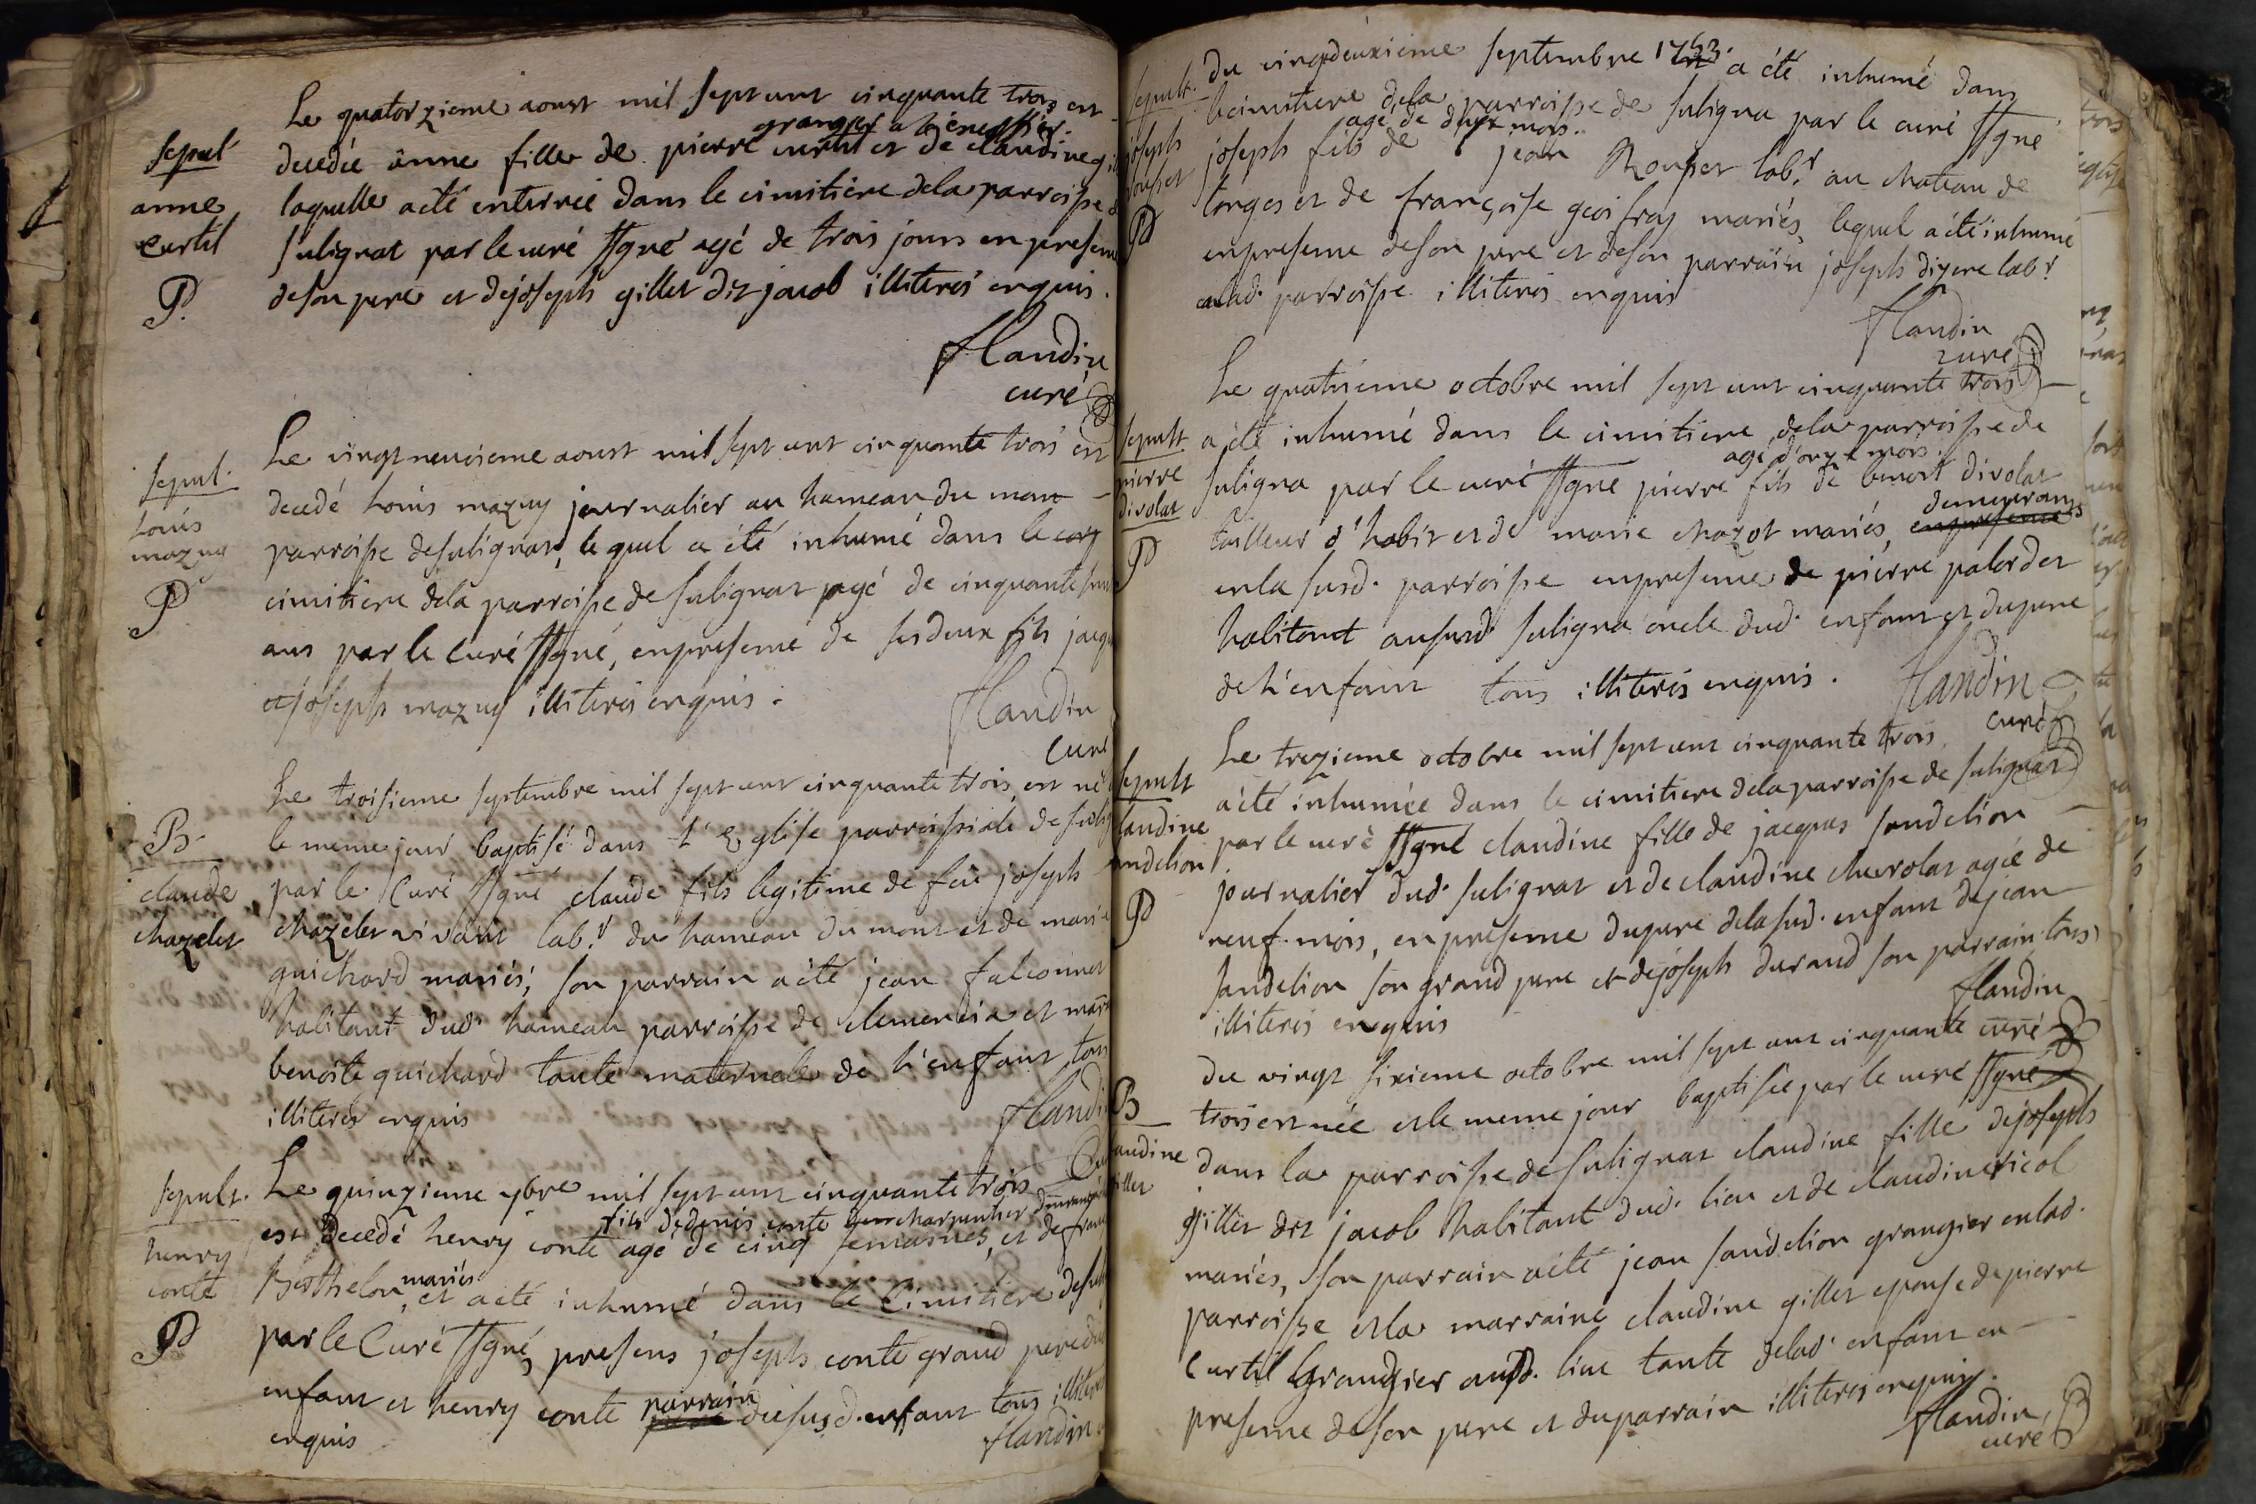 Sepul.
anne
curtil
P.
Le quatorzieme aoust mil sept cent cinquante trois est
decedée anne fille de pierre curtil granger a et de claudine
laquelle a été enterrée dans le cimitière dela parroisse
Sulignat par le curé ssgné agé de trois jours en presen
deson pere et dejoseph gillet dit jacob illiterés enquis.
flandin
curé
Sepul.
louis
mazuy
P
Le vingt neuvieme aoust mil sept cent cinquante trois est
decedé louis mazuy journalier au hameau du mon
parroisse desulignat, lequel a été inhumé dans le
cimitière dela parroisse de sulignat agé de cinquante
ans par le curé ssgné, enpresence de ses deux fils jacq
et joseph mazuy illiterés enquis.
flandin
curé
B.
claude
chazelet
Le troisieme septembre mil sept cent cinquante trois est né
le meme jour baptisé dans l'Eglise parroissiale de sulig
par le Curé ssgné claude fils legitime de feu joseph
chazelet vivant lab.r du hameau du mont et de marie
guichard mariés; son parrain a été jean falconnet
habitant dud. hameau parroisse de clemencia et marr
benoite guichard tante maternele de l'enfant tous
illiterés enquis
flandin
Sepult.
henry
conte
P
Le quinzieme 7bre mil sept cent cinquante trois
est decedé henry conte agé de cinq semaines, fils de denis conte charpentier et defran
Berthelon, mariés et a été inhumé dans le Cimitiere desul
par le Curé ssgné, presens joseph conte grand pere du
enfant et henry conte parrain dususd. enfant tous illiterés
enquis
flandin
Sepult.
joseph
rouset
P
du vingtdeuxieme septembre 1753 a été inhumé dans
le cimitiere dela parroisse de suligna par le curé ssgné
joseph fils de agé de deux mois. jean Rouset lab.r au chateau de
longes et de françoise geoifray mariés, lequel a été inhumé
enpresence deson pere et deson parrain joseph digere lab.r
enlad. parroisse illiterés enquis
flandin
curé
Sepult.
pierre
divolat
P
Le quatrieme octobre mil sept cent cinquante trois
a été inhumé dans le cimitiere dela parroisse de
suligna par le curé ssgné pierre agé d'onze mois. fils de benoit divolat
tailleur d'habit et de marie chazot mariés, demeurans
enla susd. parroisse enpresence de pierre palordet
habitant aususd. suligna oncle dud. enfant et dupere
de l'enfant tous illiterés enquis.
flandin
curé
Sepult
claudine
sandelion
P
Le trezieme octobre mil sept cent cinquante trois
a été inhumée dans le cimitiere dela parroisse de sulignat
par le curé ssgné claudine fille de jacques sandelion
journalier dud. sulignat et de claudine chevrolat agée de
neuf mois, en presence dupere dela sud. enfant dejean
sandelion son grand pere et dejoseph durand son parrain tous
illiterés enquis
flandin
curé
B
claudine
gillet
du vingt sixieme octobre mil sept cent cinquante
trois est née et le meme jour baptisée par le curé ssgné
dans la parroisse de sulignat claudine fille dejoseph
gillet dit jacob habitant dud. lieu et de claudine ricol
mariés, son parrain a été jean sandelion grangier enlad.
parroisse et la marraine claudine gillet epouse de pierre
Curtil Grangier aud. lieu tante delad. enfant en
presence deson pere et duparrain illiterés enquis.
flandin
curé